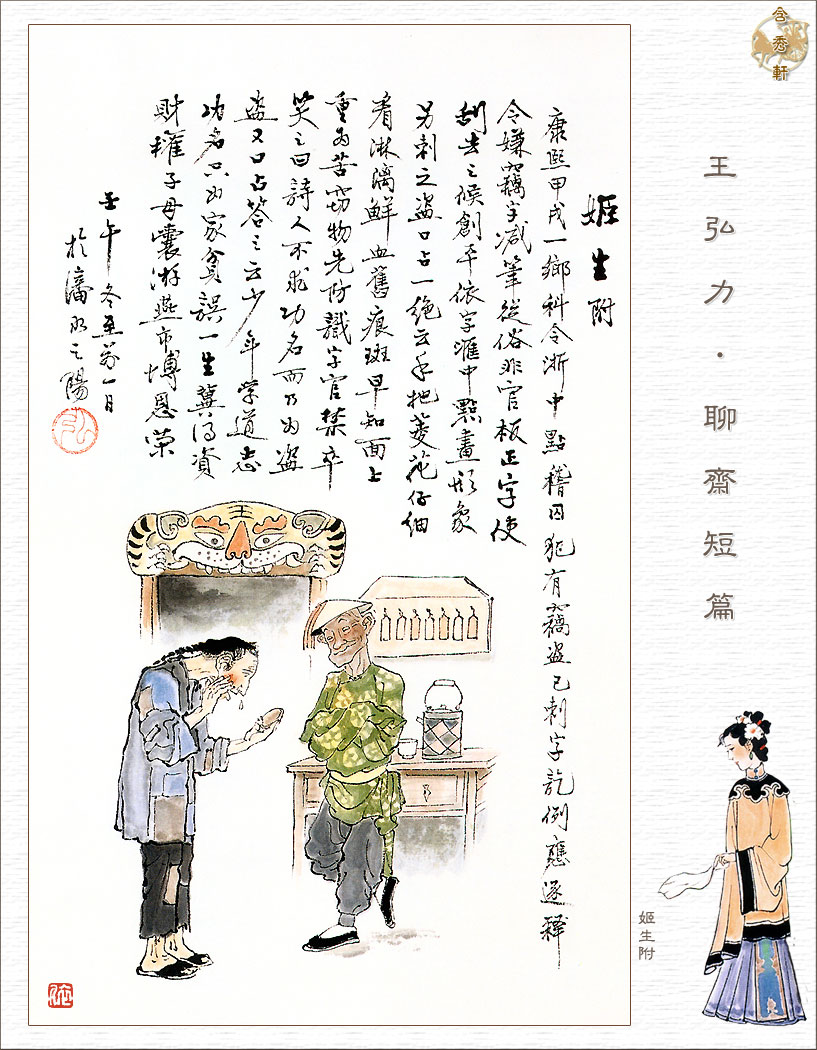 含秀軒
王弘力·聊齋短篇
姬生附
康熙甲戌一鄉科令浙中點稽囚犯有竊盜已刺字訖例應逐釋
令嫌竊字減筆從俗非官板正字使
刮去之候創平依字滙中點畫形象
另刺之盜口占一絕云手把菱花仔細
看淋漓鮮血舊痕斑早知面上
重為苦竊物先防識字官禁卒
笑之曰詩人不求功名而乃為盜
盜又口占答之云少年學道志
功名只為家貧誤一生冀得資
財權子母囊游燕市博恩榮
壬午冬至前一日
於瀋水之陽
弘
王
姬生附